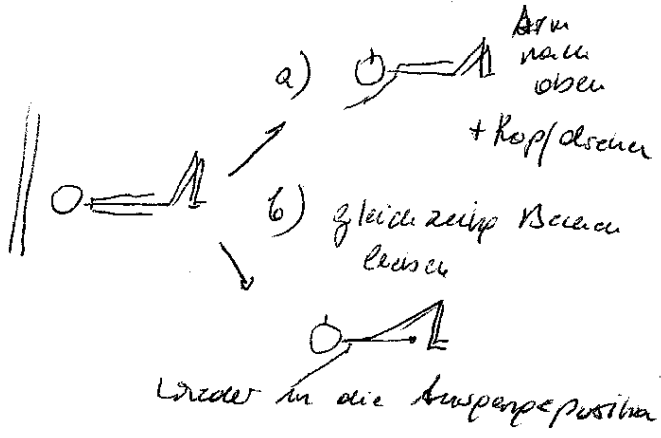 a) Arm
nach
oben
+ Kopf drehen
b) gleichzeitig Becken
heben
wieder in die Ausgangsposition